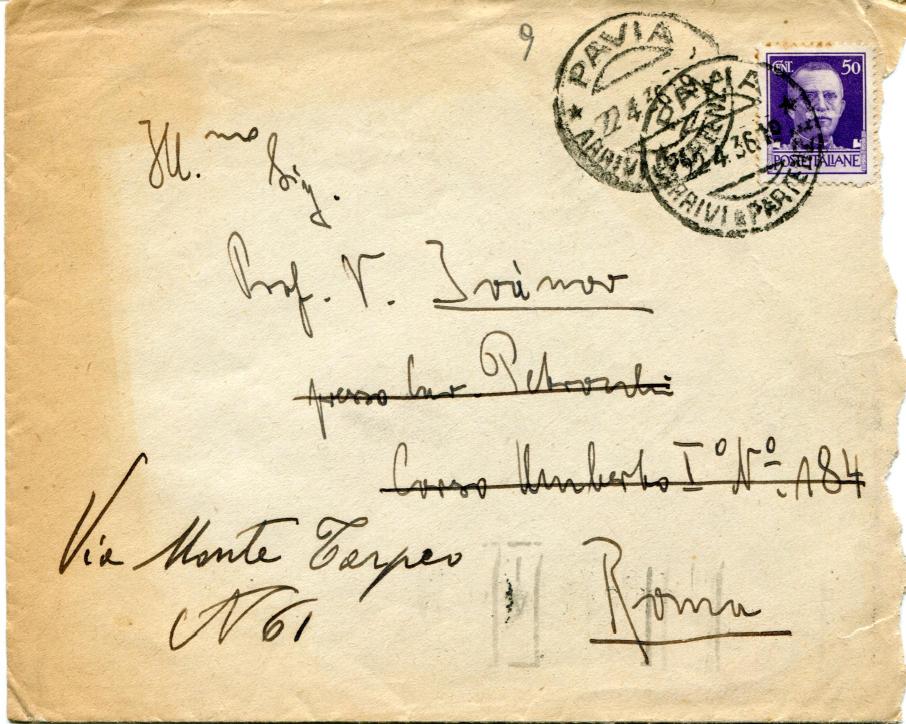 9
PAVIA
22.4.36
ARRIVI
PAVIA
22.4.36.19
ARRIVI E PARTENZE
CENT. 50
POSTE ITALIANE
Ill.mo Sig.
Prof. V. Ivánov
presso Cav. Petrocchi
Corso Umberto I° N°. 184
Via Monte Tarpeo
N 61
Roma